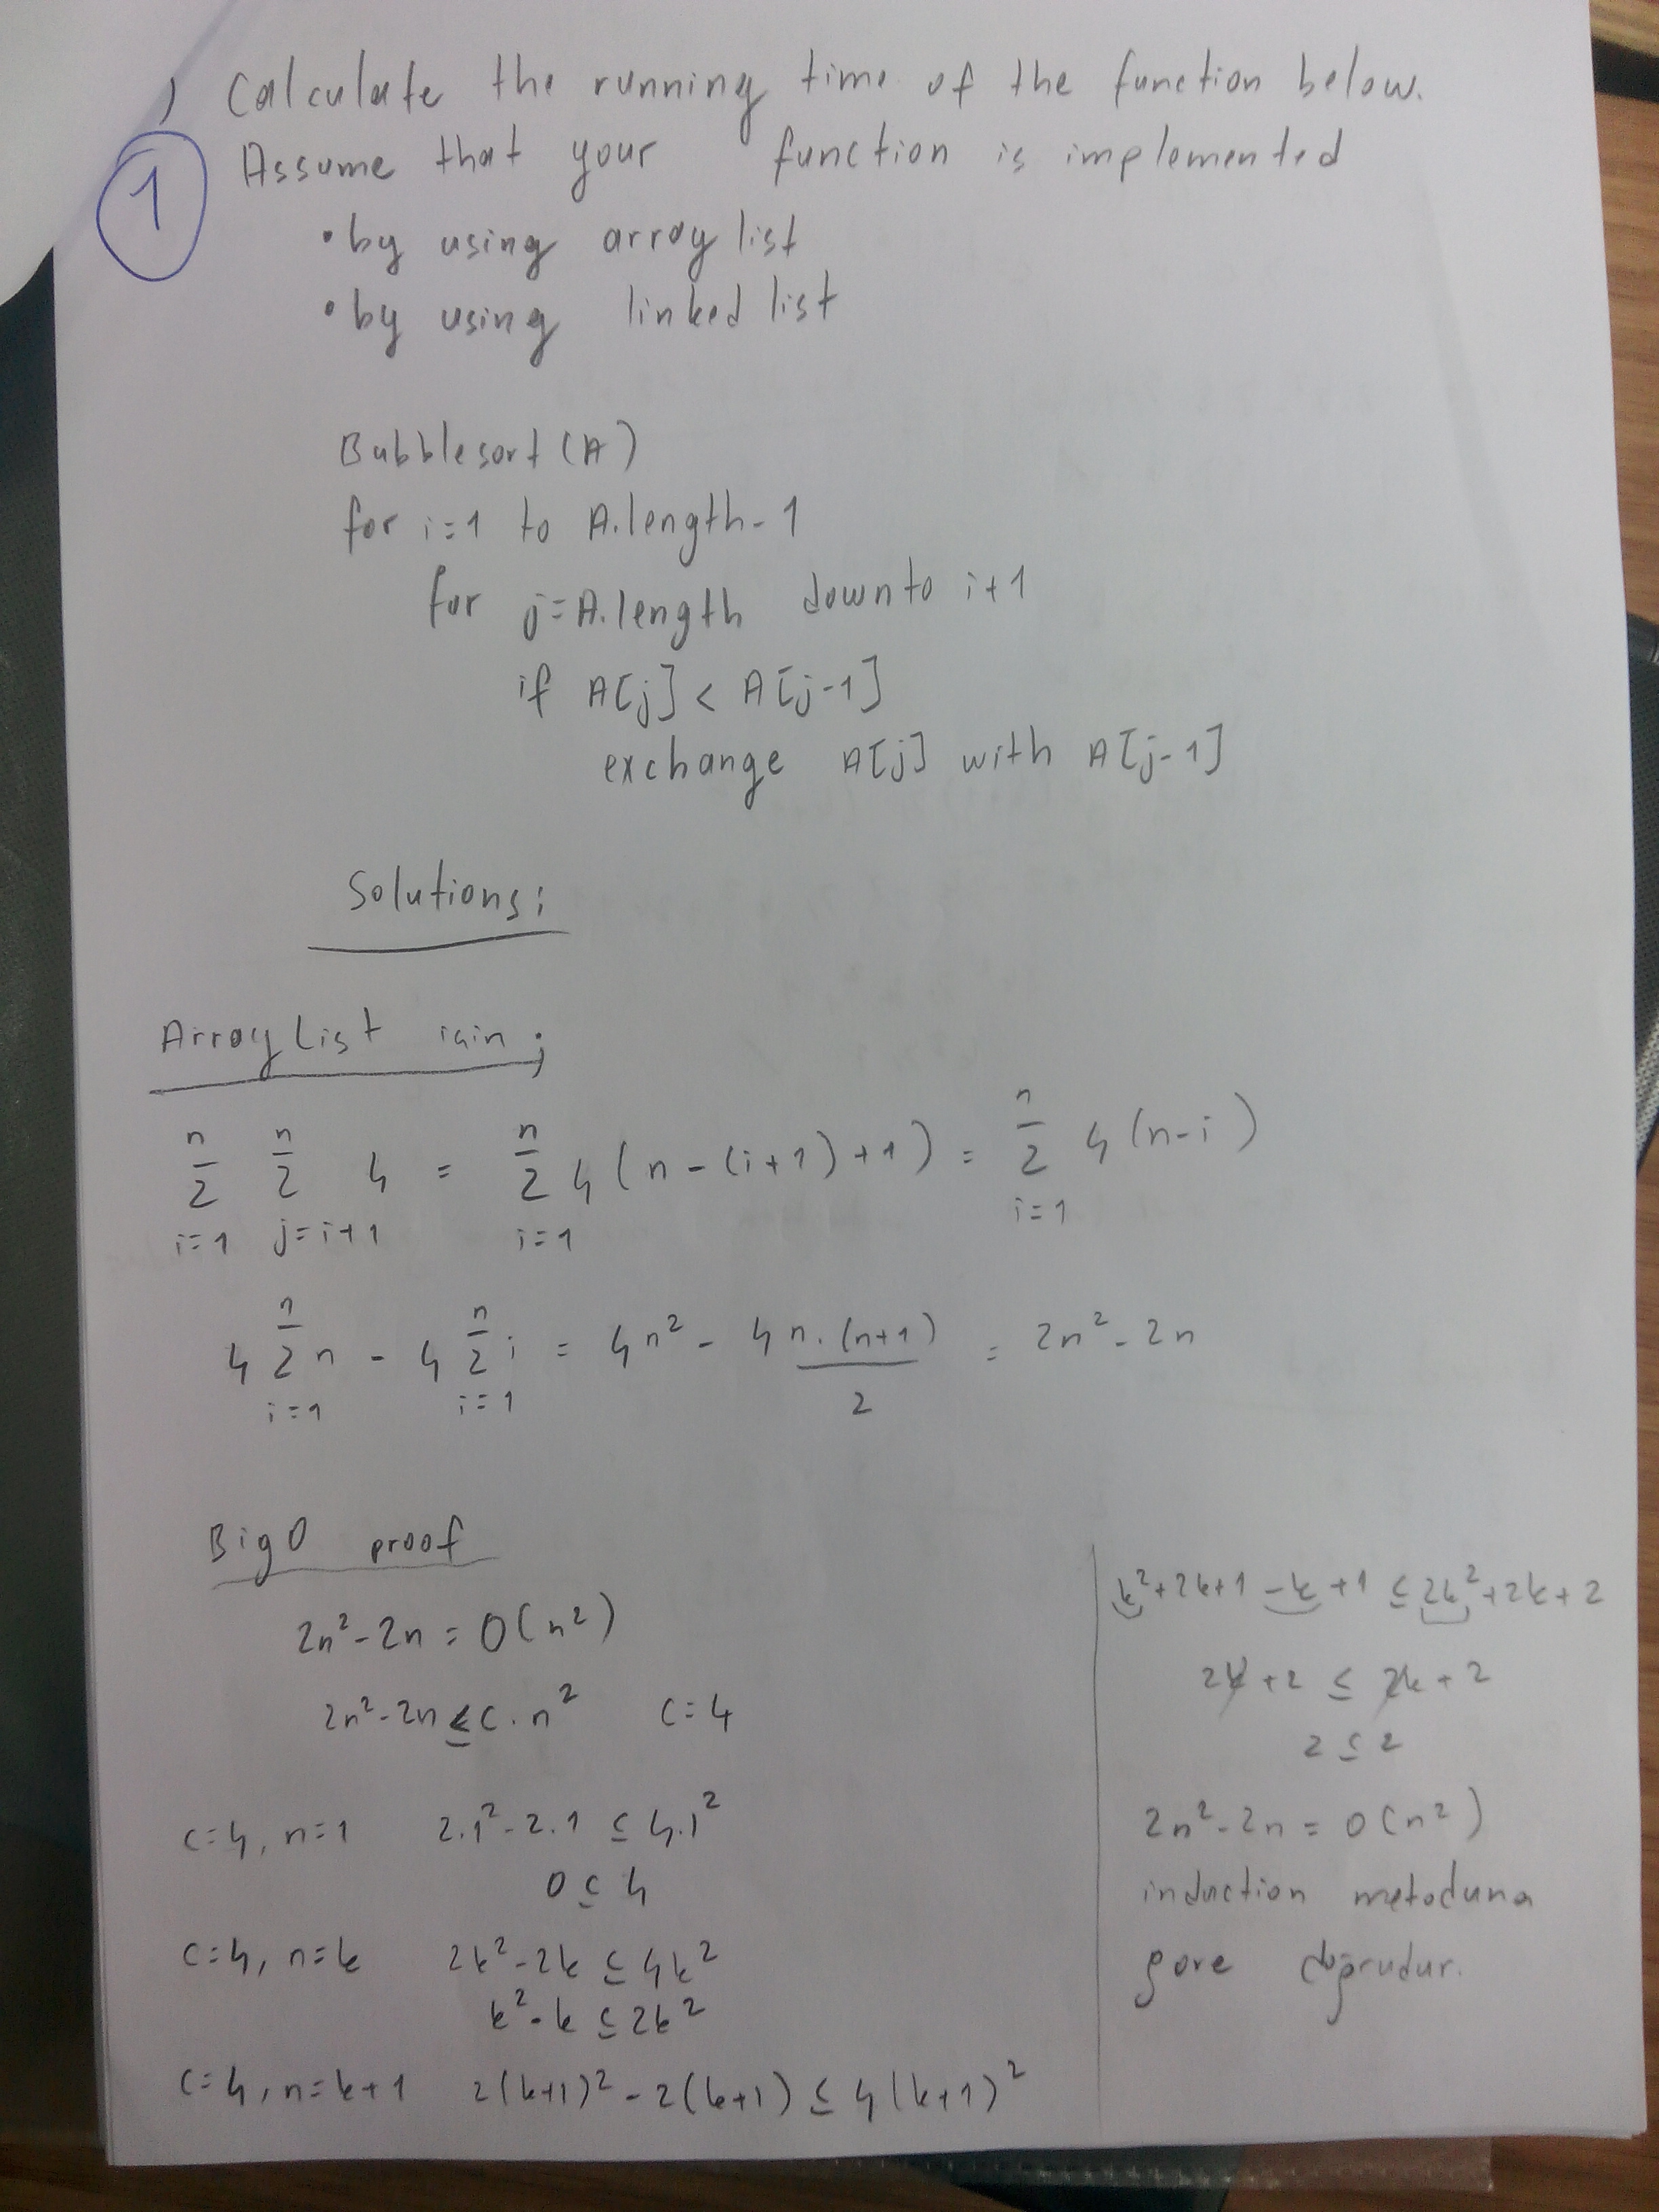 ) Calculate the running time of the function below.
1
Assume that your function is implemented
• by using array list
• by using linked list
Bubblesort (A)
for i=1 to A.length-1
for j=A.length downto i+1
if A[j] < A[j-1]
exchange A[j] with A[j-1]
Solutions:
Array List için ;
n n n n
Σ Σ 4 = Σ 4 (n-(i+1)+1) = Σ 4 (n-i)
i=1 j=i+1 i=1 i=1
n n
4 Σ n - 4 Σ i = 4n² - 4 n.(n+1) = 2n² - 2n
i=1 i=1 2
Big O proof
2n²-2n = O(n²)
2n²-2n ≤ c.n² c=4
c=4, n=1 2.1²-2.1 ≤ 4.1²
0 ≤ 4
c=4, n=k 2k²-2k ≤ 4k²
k²-k ≤ 2k²
c=4, n=k+1 2(k+1)² - 2(k+1) ≤ 4(k+1)²
k²+2k+1 -k+1 ≤ 2k²+2k+2
2k+2 ≤ 2k+2
2 ≤ 2
2n²-2n = O(n²)
induction metoduna
göre doğrudur.